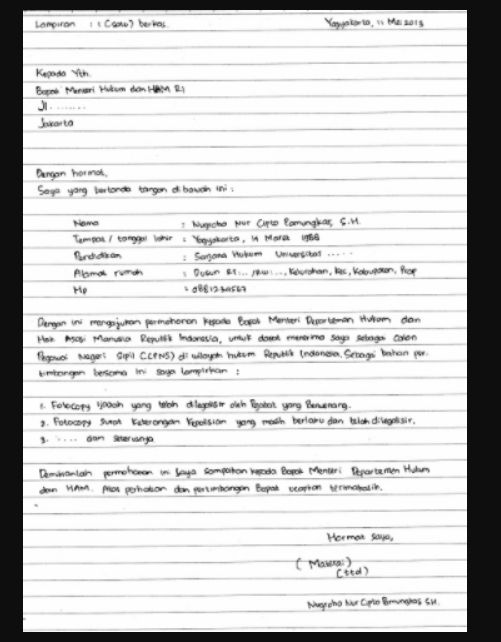 Lampiran : 1 (satu) berkas. Yogyakarta, 11 Mei 2013
Kepada Yth.
Bapak Menteri Hukum dan HAM RI
Jl. ........
Jakarta
Dengan hormat,
Saya yang bertanda tangan di bawah ini :
Nama : Nugroho Nur Cipto Pamungkas, S.H.
Tempat / tanggal lahir : Yogyakarta, 14 Maret 1988
Pendidikan : Sarjana Hukum Universitas .....
Alamat rumah : Dusun RT... /RW..., Kelurahan, Kec, Kabupaten, Prop
Hp : 0881234567
Dengan ini mengajukan permohonan kepada Bapak Menteri Departemen Hukum dan
Hak Asasi Manusia Republik Indonesia, untuk dapat menerima saya sebagai Calon
Pegawai Negeri Sipil (CPNS) di wilayah hukum Republik Indonesia. Sebagai bahan per-
timbangan bersama ini saya lampirkan :
1. Fotocopy Ijazah yang telah dilegalisir oleh Pejabat yang Berwenang.
2. Fotocopy Surat Keterangan Kepolisian yang masih berlaku dan telah dilegalisir.
3. ..... dan seterusnya
Demikianlah permohonan ini saya sampaikan kepada Bapak Menteri Departemen Hukum
dan HAM. Atas perhatian dan pertimbangan Bapak ucapkan terimakasih.
Hormat saya,
( Materai )
(ttd)
Nugroho Nur Cipto Pamungkas S.H.